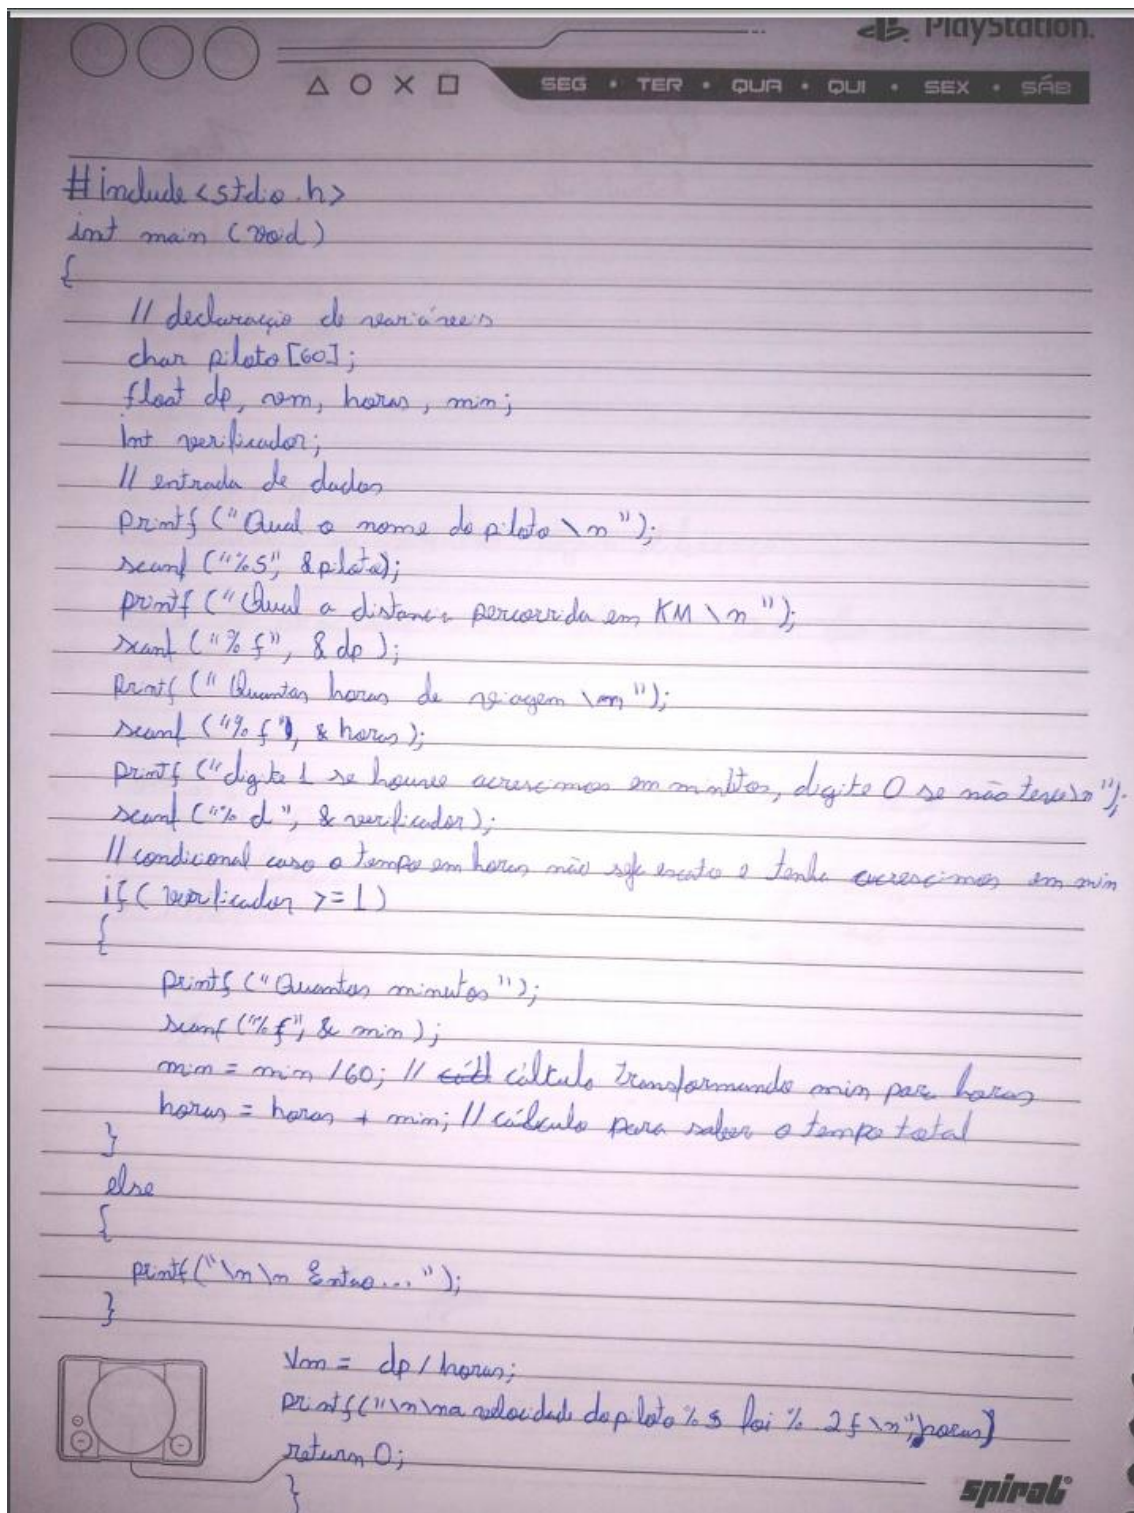 PlayStation.
SEG • TER • QUA • QUI • SEX • SÁB
#include<stdio.h>
int main (void)
{
// declaração de variáveis
char piloto [60];
float dp, vm, horas, min;
int verificador;
// entrada de dados
printf ("Qual o nome do piloto \n");
scanf ("%s", &piloto);
printf ("Qual a distancia percorrida em KM \n ");
scanf ("%f", & dp );
printf (" Quantas horas de viagem \n ");
scanf ("%f", & horas);
printf ("digite 1 se houve acrescimos em minutos, digite 0 se não teve\n");
scanf ("% d ", & verificador);
// condicional caso o tempo em horas não seja exato e tenha acrescimos em min
if ( verificador >= 1)
{
printf ("Quantos minutos");
scanf ("%f", & min );
min = min /60; // cálculo transformando min para horas
horas = horas + min; // cálculo para saber o tempo total
}
else
{
printf("\n\n Entao... ");
}
Vm = dp / horas;
printf("\n\na velocidade do piloto %s foi %.2f \n", horas)
return 0;
}
spiral